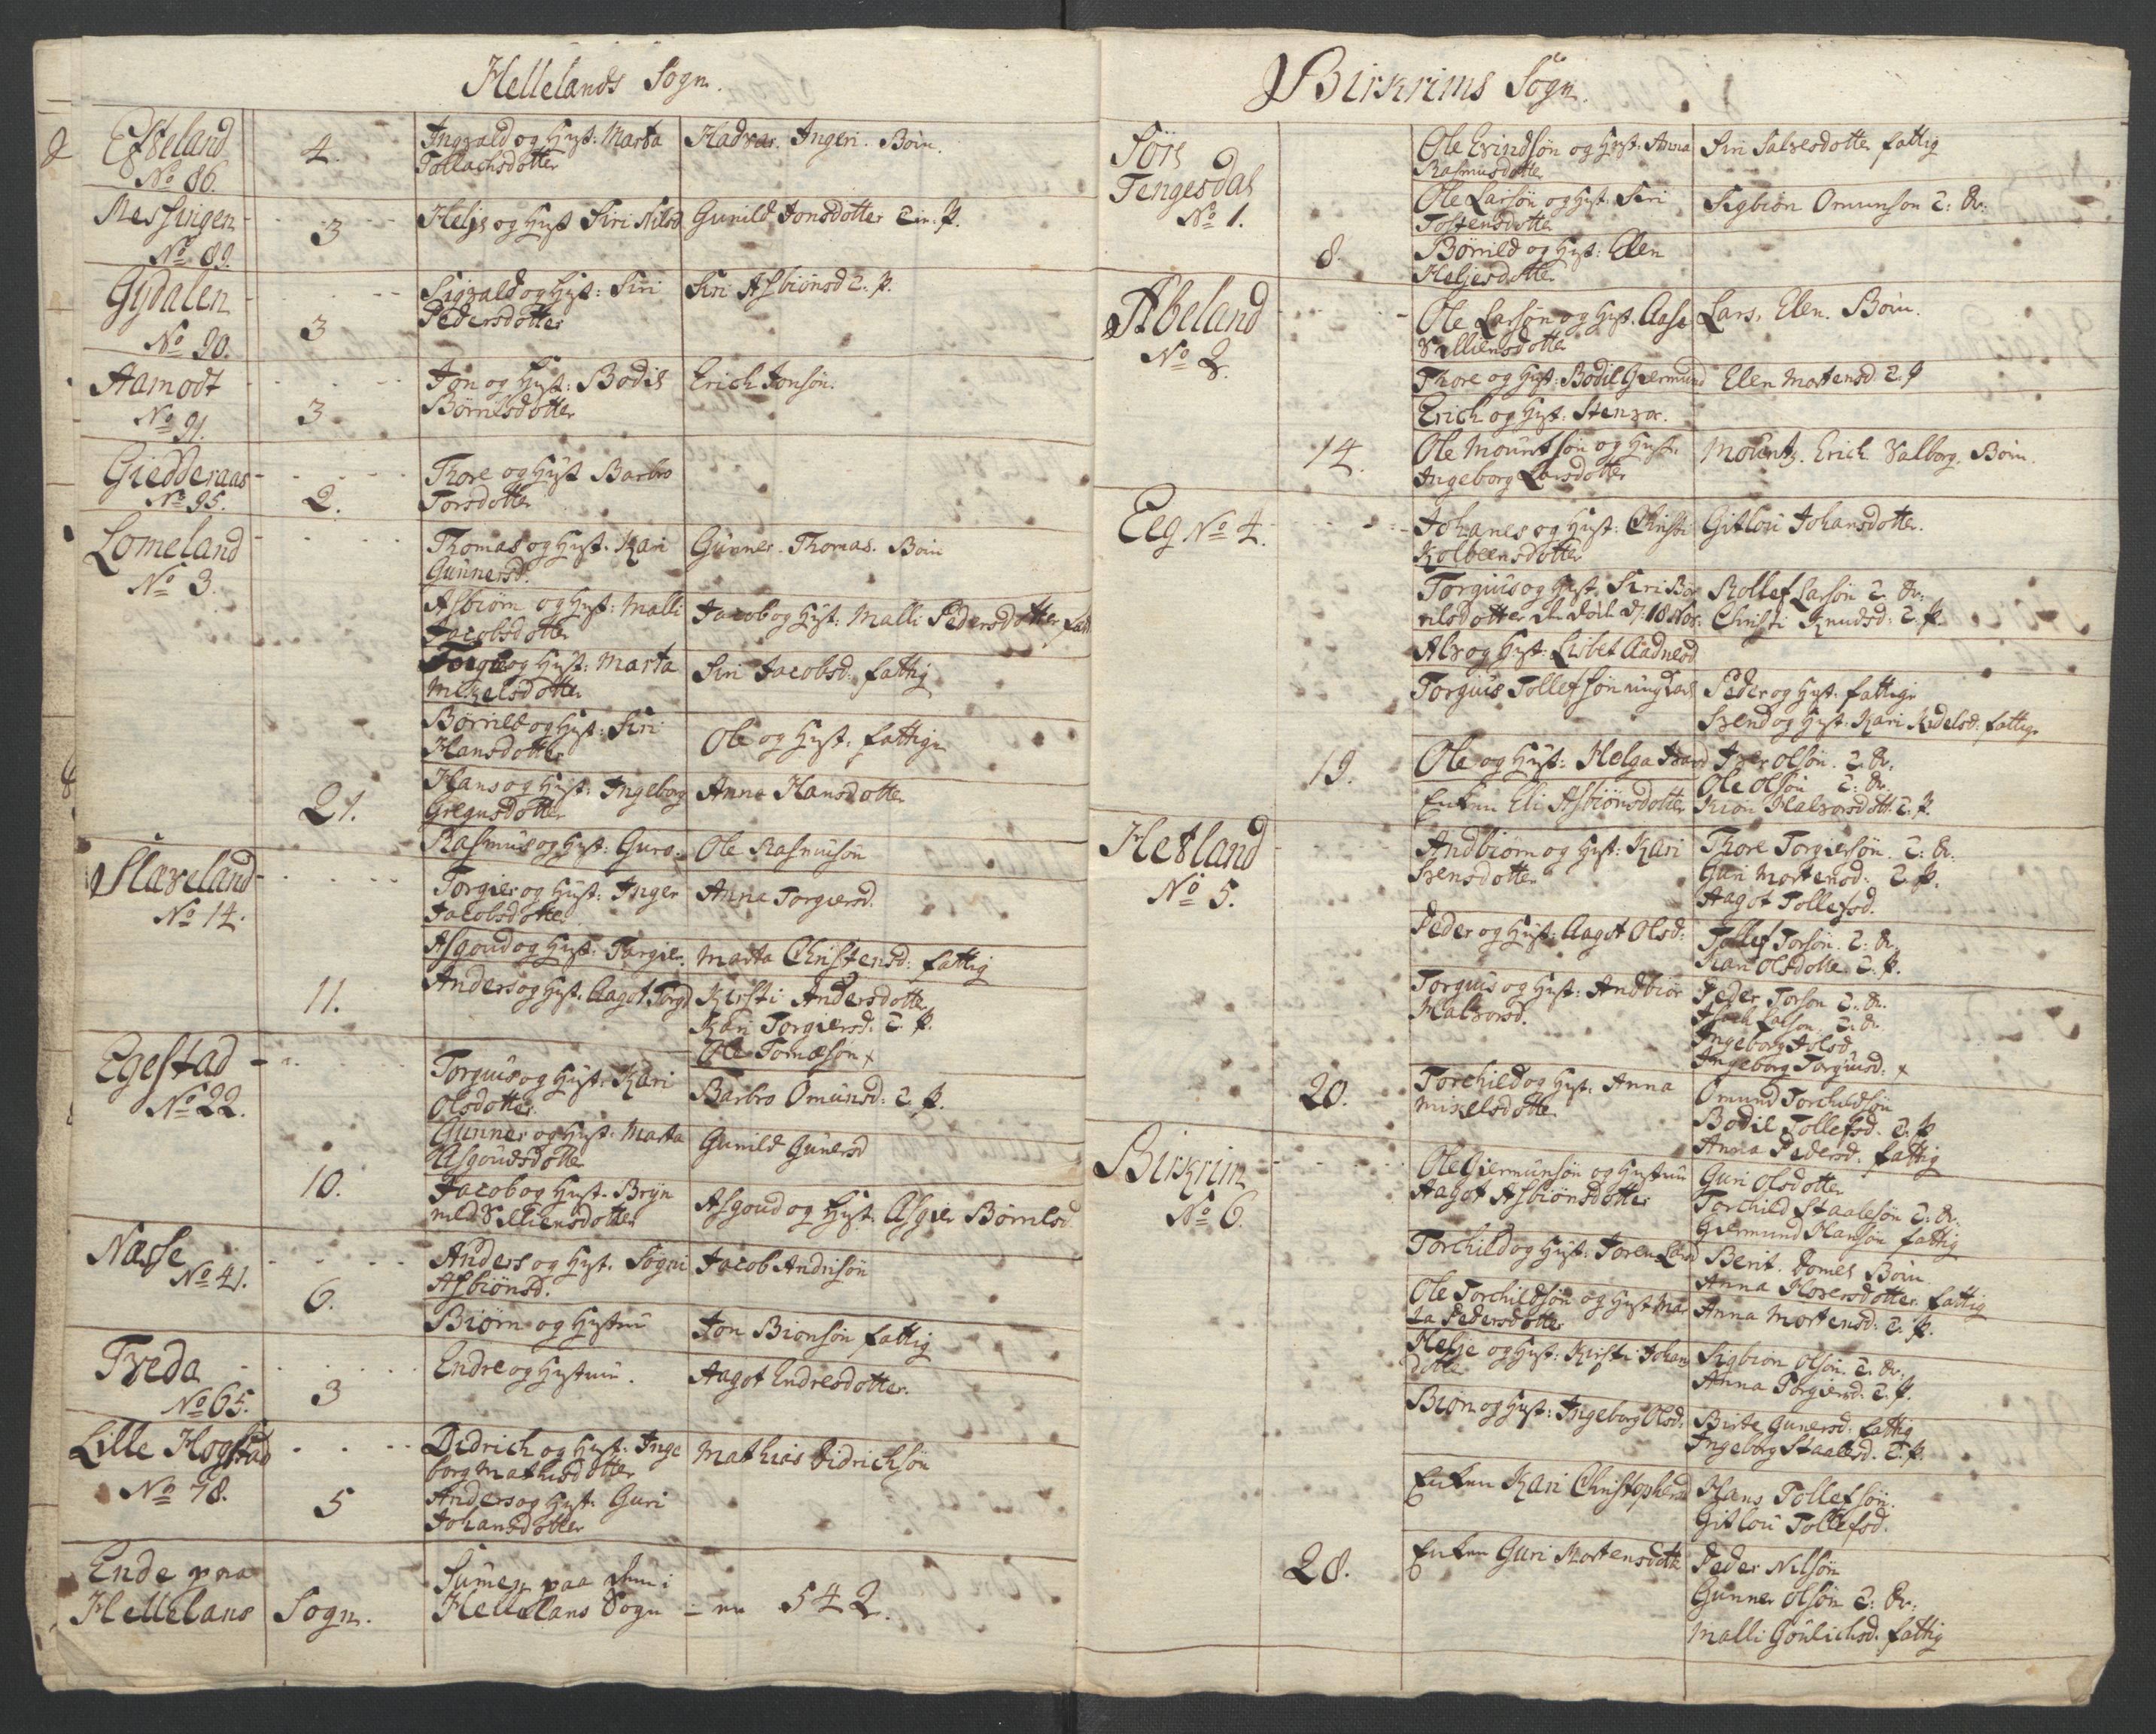 Hellelands Sogn.
Efteland
No 86.
4.
Ingvald og Hust: Marta
Tollachsdotter
Hadvar. Ingeri. Børn.
Messingen
No 89.
3
Helje og Hust Siri Nilsd
Gunild Jonsdotter T: P.
Gydalen
No 90.
3
Sigvald og Hust: Siri
Pedersdotter
Siri Asbiønsd T. P.
Aamodt
No 91.
3
Jon og Hust: Bodil
Børnilsdotter
Erich Jonsøn.
Giedderaas
No 95.
2.
Thore og Hust Barbro
Torsdotter
Lomeland
No 3.
Thomas og Hust. Kari
Gunnersd.
Gunner. Thomas. Børn
Asbiørn og Hust: Malli
Jacobsdotter
Jacob og Hust: Malli Pedersdotter fatt
og Hust: Marta
Mikelsdotter
Siri Jacobsd: fattig
Børnild og Hust: Siri
Hansdotter
Ole og Hust. fattige
21.
Hans og Hust: Ingeborg
Gregusdotter
Anna Hansdotter
Rasmus og Hust: Guro.
Ole Rasmusøn
Slaveland
No 14.
Torgier og Hust: Inger
Jacobsdotter
Anna Torgiersd.
Asgoud og Hust: Torgier.
Marta Christensd: fattig
11.
Anders og Hust. Aagot Torgd
Kirsti Andersdotter
Kari Torgiersd: T. P.
Ole Tomæsøn x
Egestad
No 22.
Torguis og Hust: Kari
Olsdotter
Barbro Omunsd: T. P.
Gunner og Hust: Marta
Asgoudsdotter
Gunild Gunersd
10.
Jacob og Hust. Bryn
nild Villiensdotter
Asgoud og Hust: Asgier Børnilsd.
Næse
No 41.
6.
Anders og Hust. Sogni
Asbiønsd.
Jacob Andrisøn
Biørn og Hustru
Jon Bionsøn fattig
Tveda
No 65.
3
Endre og Hustru.
Aagot Endresdotter.
Lille Hogstad
No 78.
5
Didrich og Hust: Inge
borg Mathisdotter
Mathias Didrichsøn
Anders og Hust. Guri
Johansdotter
Ende paa
Hellelans Sogn.
Sumen paa i
Hellelans Sogn 542.
Birkrims Sogn.
Sörs
Tengesdal
No 1.
Ole Evindsøn og Hust. Anna
Rasmusdotter
Siri Salvesdotter fattig
Ole Larsøn og Hust: Siri
Tostensdotter
Sigbiøn Omunsøn T: Dr:
8.
Børnild og Hust: Elen
Heljesdotter
Abeland
No 2.
Ole Larsøn og Hust. Aase
Villiensdotter
Lars. Elen. Børn.
Thore og Hust: Bodil Giermund
Elen Mortensd: T. P
Erich og Hust: Stenvor.
14.
Ole Mountsøn og Hust.
Ingeborg Larsdotter
Mountz. Erich. Valborg. Børn.
Eeg No 4.
Johanes og Hust: Christi
Kolbeensdotter
Gitlou Johansdotter.
Torguis og Hust. Siri Bør
nilsdotter d. 18 Nov.
Rollef Larsøn T. Dr:
Christi Knudsd: T. P.
Alv og Hust: Lisbet Aadnesd
Torguis Tollefsøn ungkarl
Peder og Hust. fattige
Svend og Hust: Kari Kidelsd: fattige
19.
Ole og Hust: Helga Ivard
Iver Olsøn. T. Dr.
Ole Olsøn T: Dr.
Enken Eli Asbiønsdotter
Halvorsdott. T. P.
Hetland
No 5.
Andbiørn og Hust: Kari
Svensdotter
Thore Torgiersøn. T: Dr.
Guri Mortensd: T. P.
Aagot Tollefsd.
Peder og Hust: Aagot Olsd:
Tollef Torsøn. T: Dr.
Kari Olsdotter. T. P.
Torguis og Hust: Andbiør
Halvorsd.
Peder Torsøn T: Dr.
T. Dr
Ingeborg Jolsd.
Ingeborg Torguisd: x
20.
Torchild og Hust: Anna
Mikelsdotter
Omund Torchildsøn
Bodil Tollefsd. T. P
Anna Pedersd: fattig
Birkrim
No 6.
Ole Giermunsøn og Hustru
Aagot Asbiønsdotter
Guri Olsdotter
Torchild Staalesøn T: Dr.
Giermund Hansøn fattig
Torchild og Hust: Joren Lard
Berit. Børn.
Anna fattig
Ole Torchildsøn og Hust Mar
ta Pedersdotter
Anna Mortensd: T. P.
Helje og Hust: Kirsti Johan
dotter
Sigbiøn Olsøn. T. Dr.
Anna Torgiersd: T. P.
Biøn og Hust: Ingeborg Olsd:
Birte Gunersd: fattig
Ingeborg Staalesd. T. P.
Enken Kari Christophersd
Hans Tollefsøn.
Gitlou Tollefsd.
28.
Enken Guri Mortensdotte
Peder Nilsøn
Gunner Olsøn T: Dr.
Malli Goulichsd. fattig